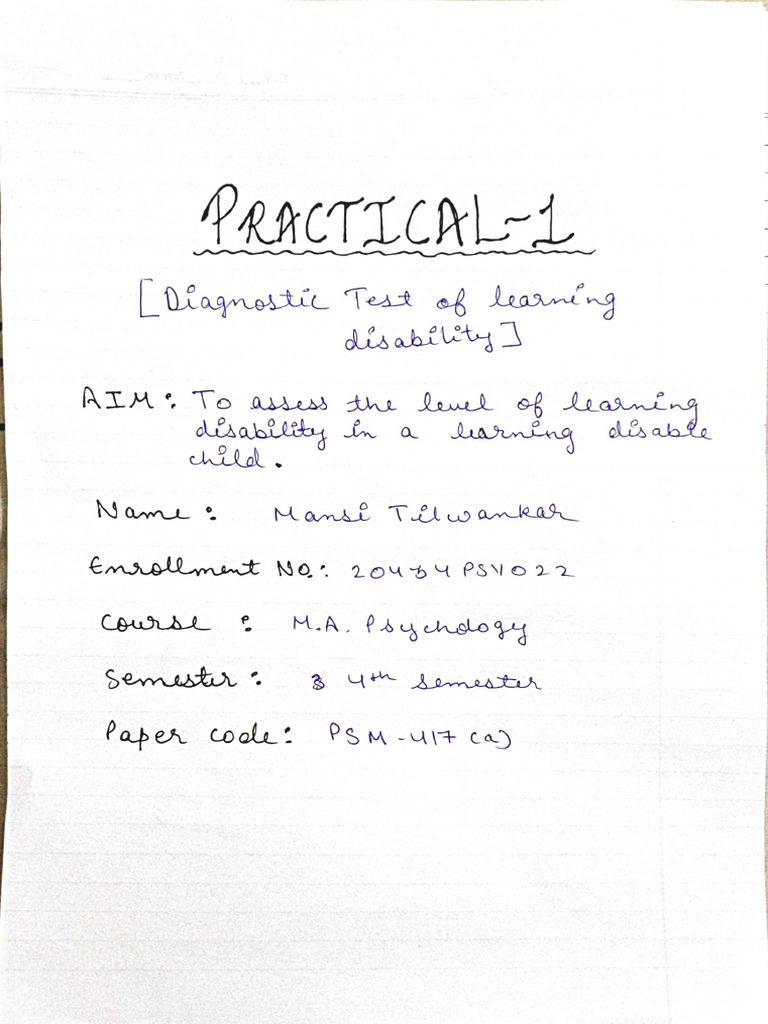 PRACTICAL-1
[Diagnostic Test of learning
disability]
AIM: To assess the level of learning
disability in a learning disable
child.
Name: Mansi Tilwankar
Enrollment No.:
Course: M.A. Psychology
Semester: 4th semester
Paper code: PSM-417(a)